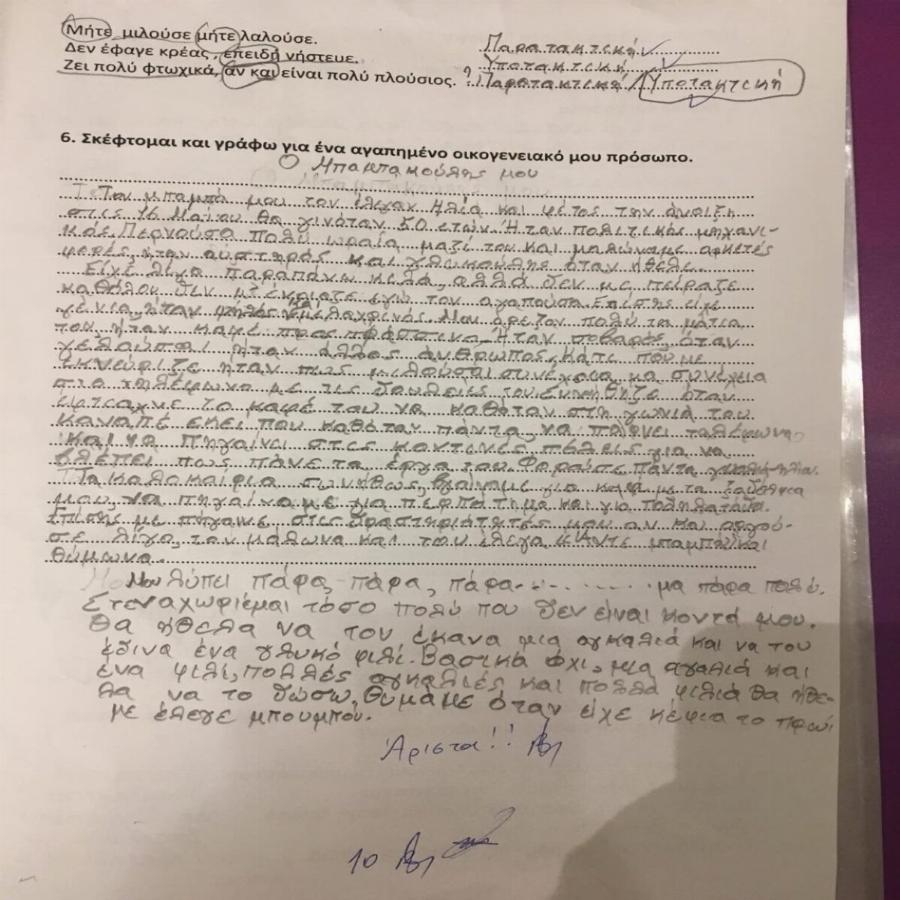 Μήτε μιλούσε μήτε λαλούσε. Παρατακτική
Δεν έφαγε κρέας, επειδή νήστευε. Υποτακτική
Ζει πολύ φτωχικά, αν και είναι πολύ πλούσιος. ? Παρατακτική / Υποτακτική
6. Σκέφτομαι και γράφω για ένα αγαπημένο οικογενειακό μου πρόσωπο.
Ο Μπαμπακούλης μου
Τον μπαμπά μου τον έλεγαν Ηλία και φέτος την άνοιξη
στις 16 Μαΐου θα γινόταν 50 ετών. Ήταν πολιτικός μηχανι-
κός. Περνούσα πολύ ωραία μαζί του και μαλώναμε αρκετές
φορές, ήταν αυστηρός και γλυκούλης όταν ήθελε.
Είχε λίγα παραπάνω κιλά, αλλά δεν με πείραζε
καθόλου δεν με ένοιαζε εγώ τον αγαπούσα. Επίσης είχε
γένια, ήταν ψηλός και μελαχρινός. Μου άρεζαν πολύ τα μάτια
του ήταν καφέ προς πράσινα. Ήταν σοβαρός, όταν
γελούσε ήταν άλλος άνθρωπος, κάτι που με
εκνεύριζε ήταν πως μιλούσε συνέχεια μα συνέχεια
στο τηλέφωνο με τις δουλειές του. Συνήθιζε όταν
έφτιαχνε το καφέ του να καθόταν στη γωνιά του
καναπέ εκεί που καθόταν πάντα, να παίρνει τηλέφωνα
και να πηγαίνει στις κοντινές πόλεις για να
βλέπει πως πάνε τα έργα του. Φορούσε πάντα γυαλιά ηλίου.
Τα καλοκαίρια συνήθως βγαίναμε για καφέ με τα ξαδέλφια
μου, να πηγαίναμε για περπάτημα και για ποδηλατάδα.
Επίσης με πήγαινε στις δραστηριότητές μου αν και αργού-
σε λίγο, τον μάλωνα και του έλεγα «Άντε μπαμπά» και
θύμωνα.
Μου λύπει πάρα, πάρα, πάρα........... μα πάρα πολύ.
Στεναχωριέμαι τόσο πολύ που δεν είναι κοντά μου.
Θα ήθελα να του έκανα μια αγκαλιά και να του
έδινα ένα γλυκό φιλί. Βασικά όχι, μια αγαλιά και
ένα φιλί, πολλές αγκαλιές και πολλά φιλιά θα ήθε-
λα να το δώσω. Θυμάμε όταν είχε κέφια το πρωί
με έλεγε μπουμπού.
Άριστα!!
10